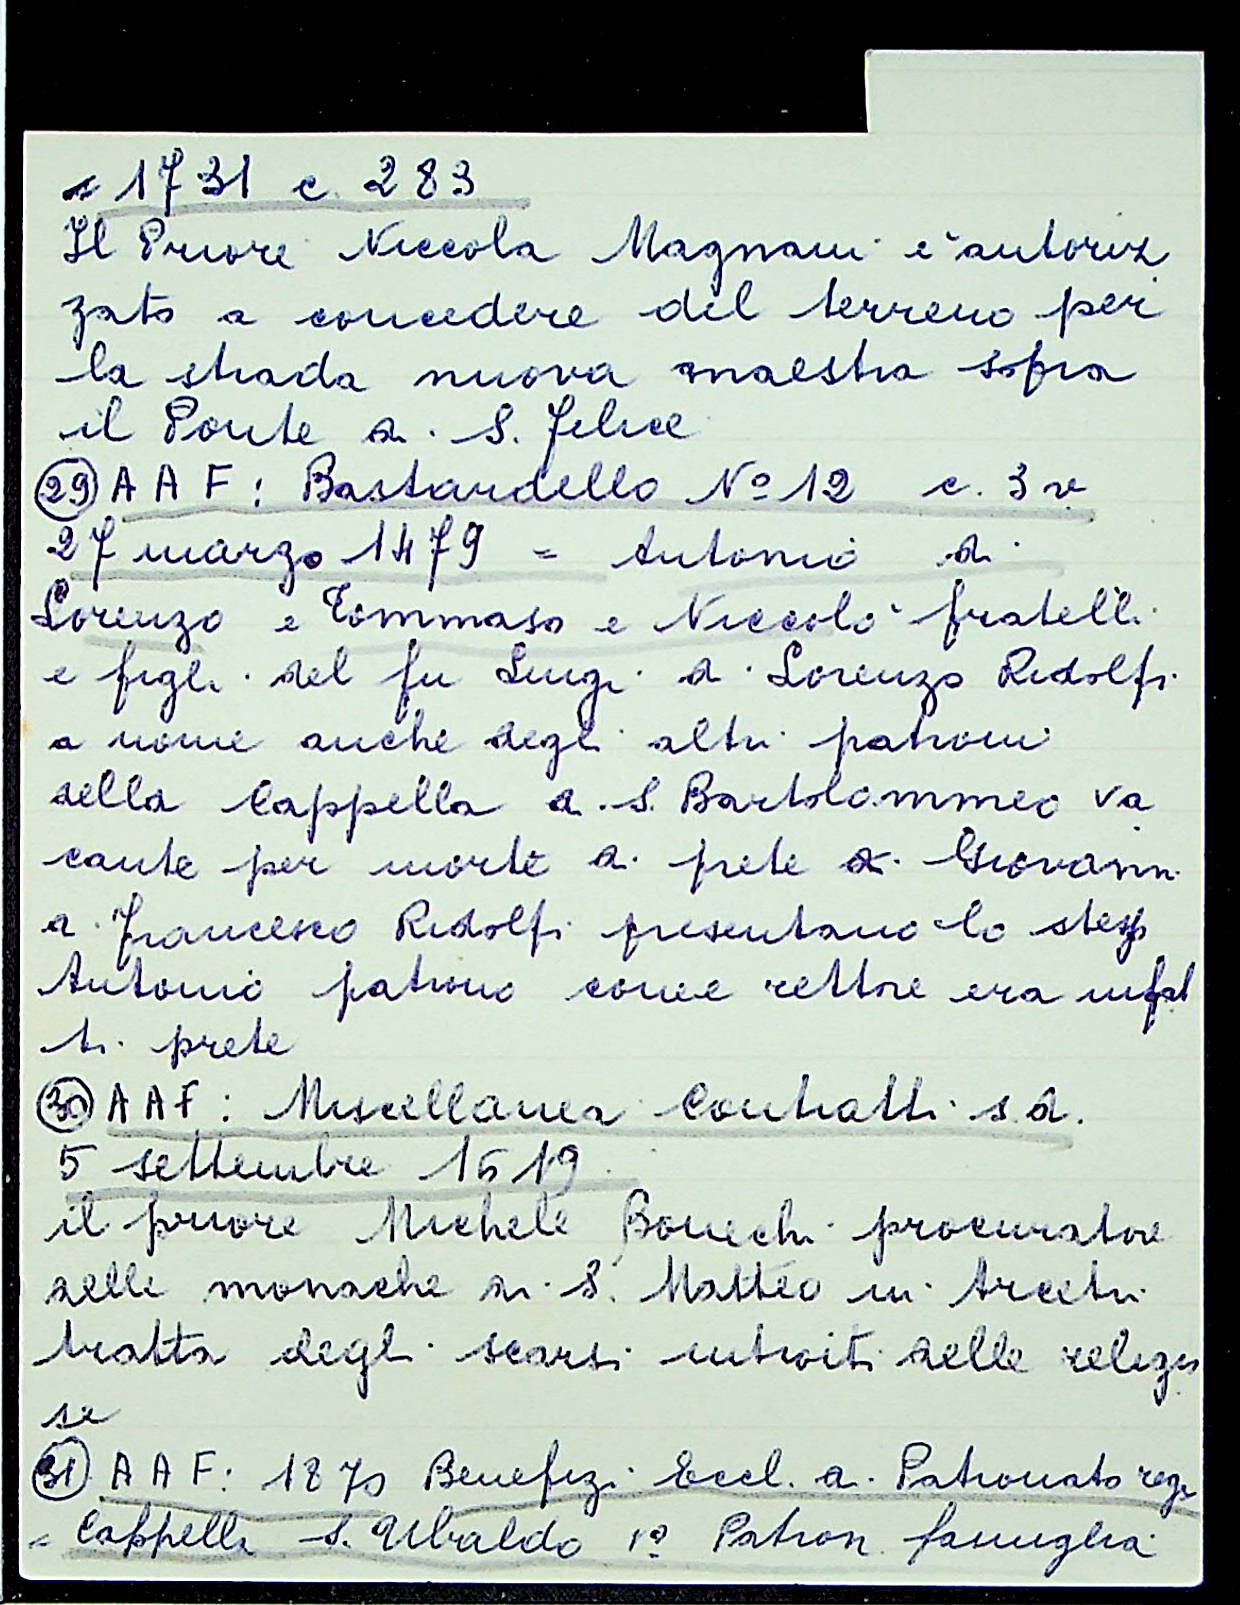 = 1731 c. 283
Il Priore Niccola Magnani è autoriz
zato a concedere del terreno per
la strada nuova maestra sopra
il Ponte a S. Felice
29 AAF: Bastardello Nº 12 c. 3 v
27 marzo 1479 = Antonio di
Lorenzo e Tommaso e Niccolò fratelli
e figli del fu Luigi di Lorenzo Ridolfi
a nome anche degli altri patroni
della Cappella di S. Bartolommeo va
cante per morte di prete di Giovanni
di Francesco Ridolfi presentano lo stesso
Antonio patrono come rettore era infat
ti prete
30 AAF: Miscellanea Contratti s.d.
5 settembre 1519
il priore Michele Bonechi procuratore
delle monache di S. Matteo in Arcetri
tratta degli scarsi introiti delle religio
se
31 AAF: 1870 Benefizi Eccl. di Patronato regi
= Cappella S. Ubaldo 1º Patron. famiglia